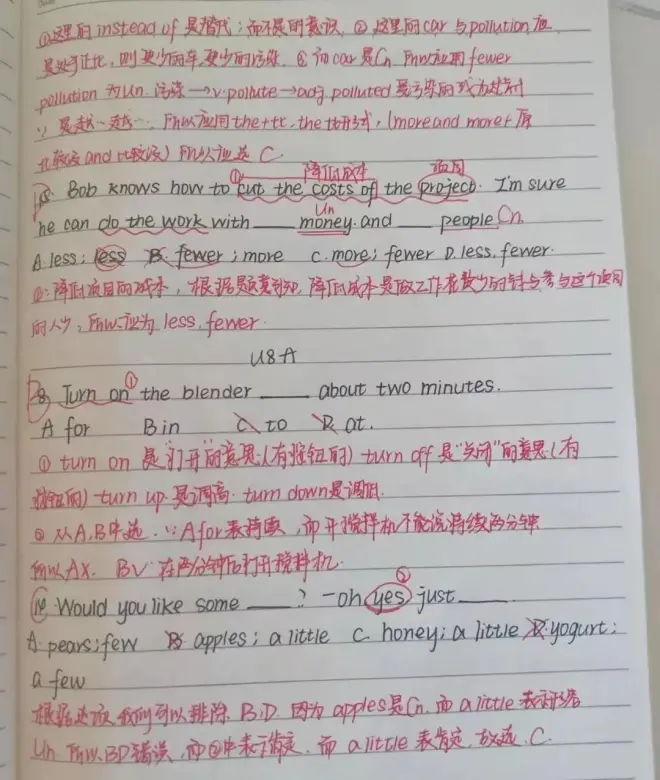 ①这里的 instead of 是替代；而不是的意识, ② 这里的 car 与 pollution 应
是处于正比, 则更少的车, 更少的污染. ③ 而 car 是Cn. 所以应用 fewer
pollution 为 Un. 污染 → v. pollute → adj polluted 受污染的
∵ 是越…越…, 所以应用 the+比…the+比形式, (more and more + 原
比较级 and 比较级) 所以应选 C.
降低成本 项目
① Bob knows how to cut the costs of the project. I'm sure
Un
he can do the work with ____ money and ____ people Cn.
A. less; less B. fewer; more C. more; fewer D. less, fewer.
②: 降低项目的成本, 根据题意可知, 降低成本是做工作花较少的钱与参与这个项目
的人少, 所以应为 less, fewer.
U8A
8. Turn on ① the blender ____ about two minutes.
A for B in C to D at.
① turn on 是"打开"的意思 (有按钮的) turn off 是"关闭"的意思 (有
按钮的) turn up 是调高. turn down 是调低.
② 从 A, B 中选. ∵ A for 表持续, 而开搅拌机不能说持续两分钟
所以 A×. B√ 在两分钟后打开搅拌机.
②
Would you like some ____? -oh yes just ____.
A. pears; few B. apples; a little C. honey; a little D. yogurt;
a few
根据选项, 我们可以排除 B.D. 因为 apples 是Cn. 而 a little 表
Un 所以. BD 错误, 而②中表示肯定. 而 a little 表肯定, 故选. C.